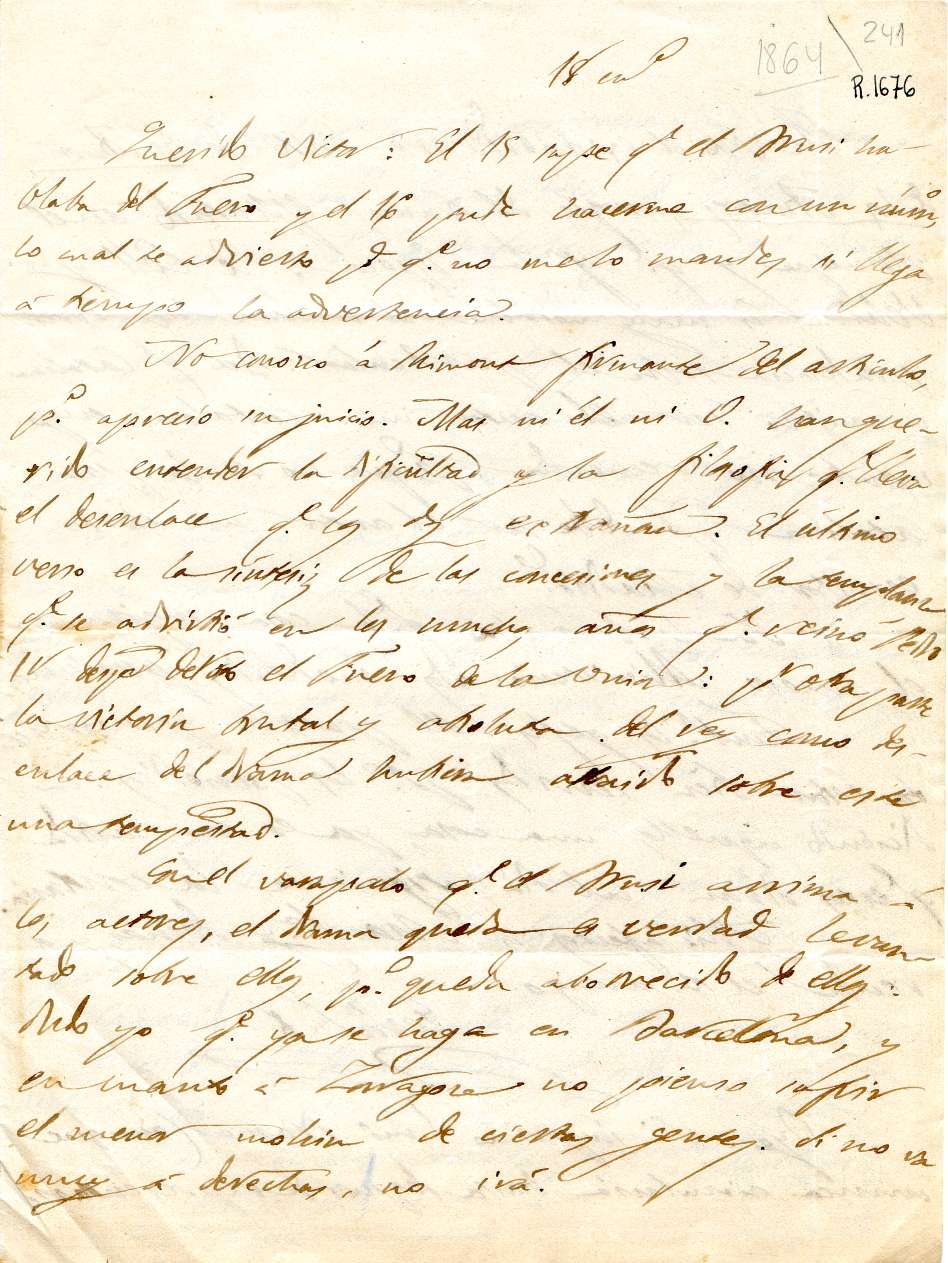 1864 241
R.1676
18 enº
Querido Victor: El 15 supe q.e el Brusi ha-
blaba del Fuero y el 16 pude hacerme con un núm.o,
lo cual te advierto pª q.e no me lo mandes si llega
á tiempo la advertencia.
No conozco á Rimont firmante del artículo,
pº. aprecio su juicio. Mas ni él ni O. han que-
rido entender la dificultad y la filosofia q.e lleva
el desenlace q.e los dos extrañan. El último
verso es la síntesis de las concesiones y la templanza
q.e se advirtió en los muchos años q.e reinó Pedro
IV después de roto el Fuero de la Union: pr otra parte
la victoria brutal y absoluta del rey como des-
enlace del drama hubiera atraido sobre este
una tempestad.
Con el varapalo q.e el Brusi arrima á
los actores, el drama queda es verdad levan
tado sobre ellos, pº. queda aborrecido de ellos.
Dudo yo q.e ya se haga en Barcelona, y
en cuanto á Zaragoza no pienso sufrir
el menor mohin de ciertas gentes. Si no va
muy á derechas, no irá.